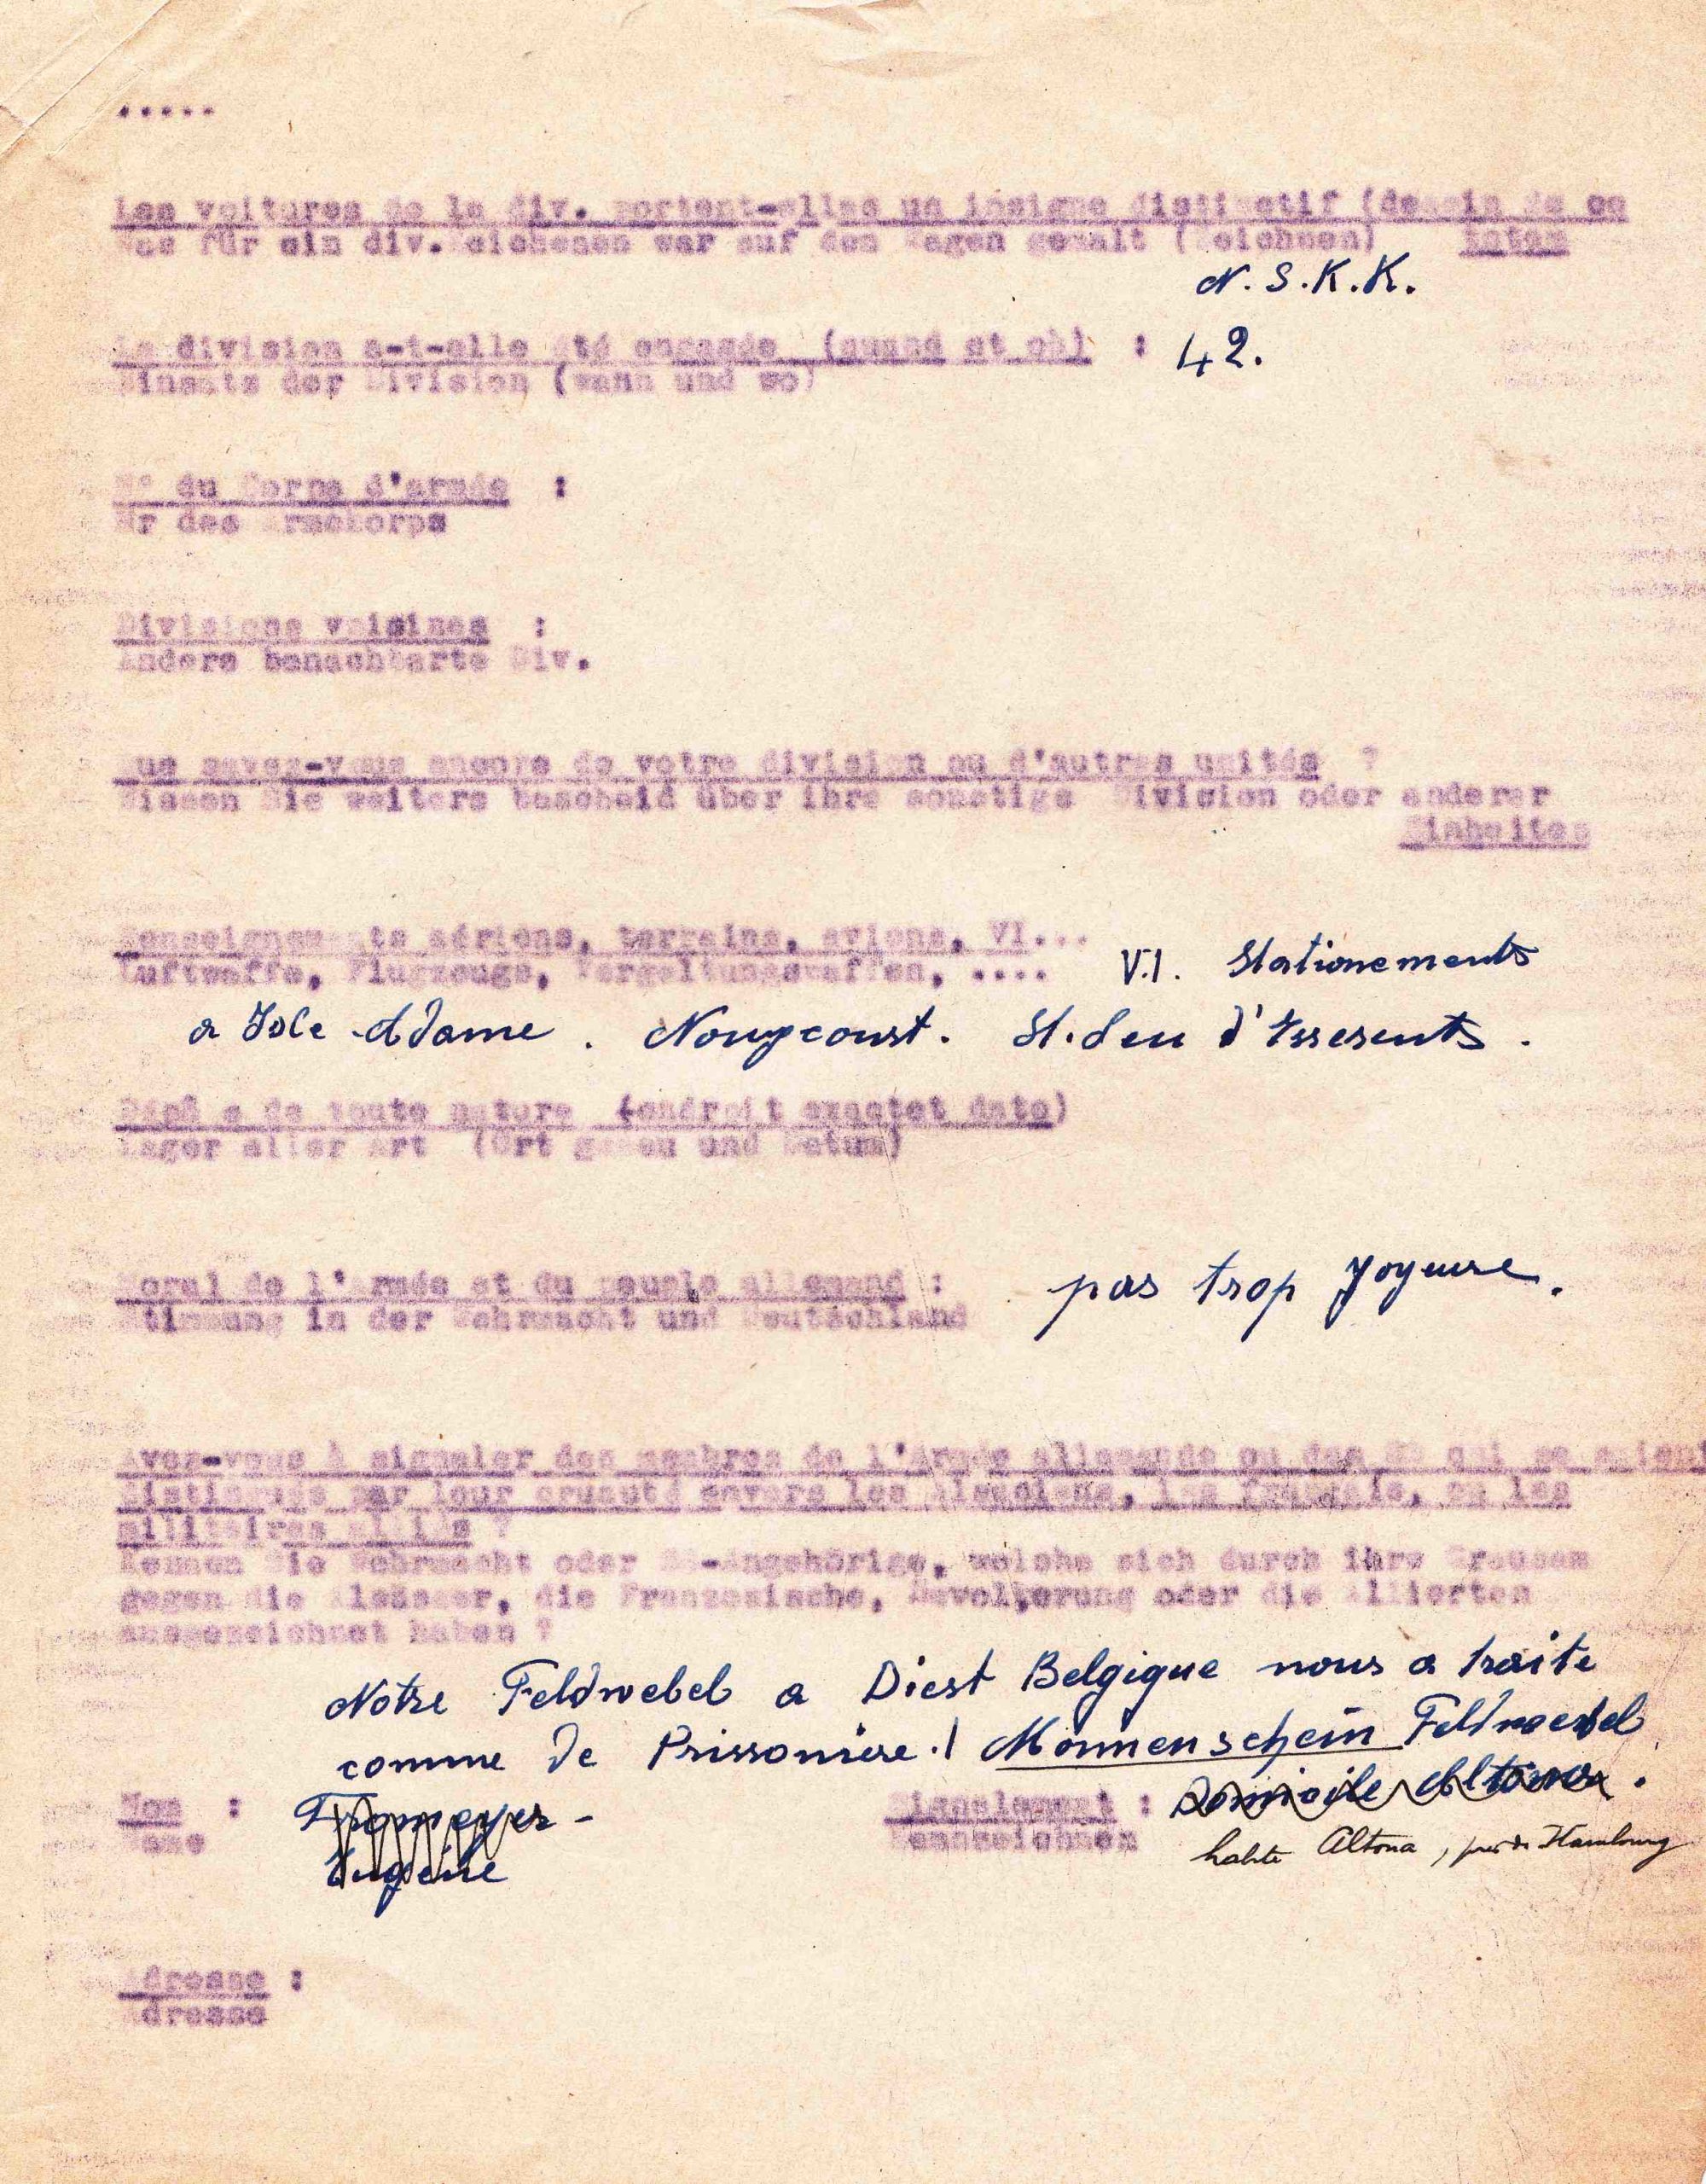 .....
Les voitures de la div. portent-elles un insigne distinctif (dessin de ce
Was für ein div.Zeichenen war auf den Wagen gemalt (Zeichnen)
N.S.K.K.
La division a-t-elle été engagée (quand et où) : 42.
Einsatz der Division (wann und wo)
N° du Corps d'armée :
Nr des Armekorps
Divisions voisines :
Andere benachbarte Div.
Que savez-vous encore de votre division ou d'autres unités ?
Wissen Sie weiters bescheid über ihre sonstige Division oder anderer
Einheiten
Renseignements aériens, terrains, avions, VI...
Luftwaffe, Flugzeuge, Vergeltungswaffen, .... V.1. Stationements
a Isle Adame . Nougcourt. St.Leu d'Esserents .
Dépô s de toute nature (endroit exactet date)
Lager aller Art (Ort genau und Datum)
Moral de l'armée et du peuple allemand : pas trop Joyeuse.
Stimmung in der Wehrmacht und Deutschland
Avez-vous à signaler des membres de l'Armée allemande ou des SS qui se soient
distingués par leur cruauté envers les Alsaciens, les français, ou les
militaires alliés ?
Kennen Sie Wehrmacht oder SS-Angehörige, welche sich durch ihre Grausam
gegen die Elsässer, die Französische, Bevolkerung oder die Allierten
ausgezeichnet haben ?
Notre Feldwebel a Diest Belgique nous a traite
comme de Prissoniere.! Monnenschein Feldwebel
Nom : Fromeyer - Signalement : Domicile Altona .
Name Kennzeichnen
Eugène habite Altona, près de Hambourg
Adresse :
Adresse